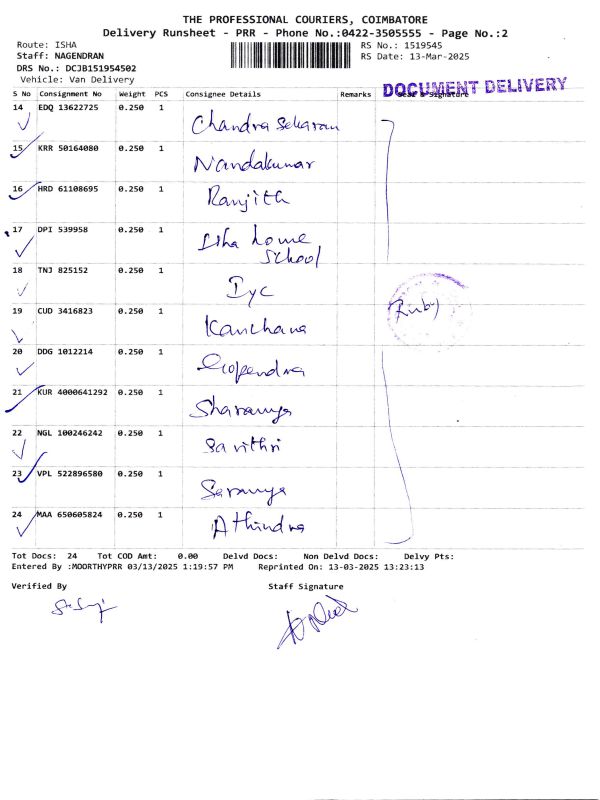 THE PROFESSIONAL COURIERS, COIMBATORE
Delivery Runsheet - PRR - Phone No.:0422-3505555 - Page No.:2
Route: ISHA RS No.: 1519545
Staff: NAGENDRAN RS Date: 13-Mar-2025
DRS No.: DCJB151954502
Vehicle: Van Delivery
DOCUMENT DELIVERY
S No Consignment No Weight PCS Consignee Details Remarks Seal & Signature
14 EDQ 13622725 0.250 1 Chandra Sekaran
15 KRR 50164080 0.250 1 Nandakumar
16 HRD 61108695 0.250 1 Ranjith
17 DPI 539958 0.250 1 Isha home
School
18 TNJ 825152 0.250 1 Iyc
19 CUD 3416823 0.250 1 Kanchana
Ruby
20 DDG 1012214 0.250 1 Gopendra
21 KUR 4000641292 0.250 1 Sharanya
22 NGL 100246242 0.250 1 Savithri
23 VPL 522896580 0.250 1 Saranya
24 MAA 650605824 0.250 1 Athindra
Tot Docs: 24 Tot COD Amt: 0.00 Delvd Docs: Non Delvd Docs: Delvy Pts:
Entered By :MOORTHYPRR 03/13/2025 1:19:57 PM Reprinted On: 13-03-2025 13:23:13
Verified By Staff Signature